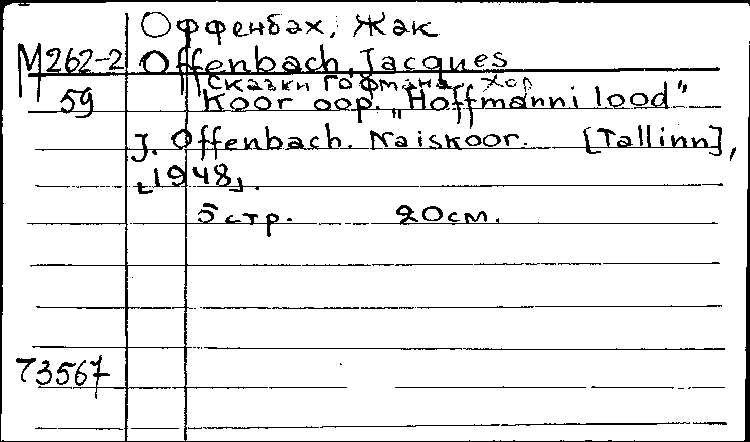 Оффенбах, Жак
М262-2 Offenbach, Jacques
Сказки Гофмана Хор
59 Koor oop. „Hoffmanni lood"
J. Offenbach. Naiskoor. [Tallinn],
[1948].
5 стр. 20 см.
73567